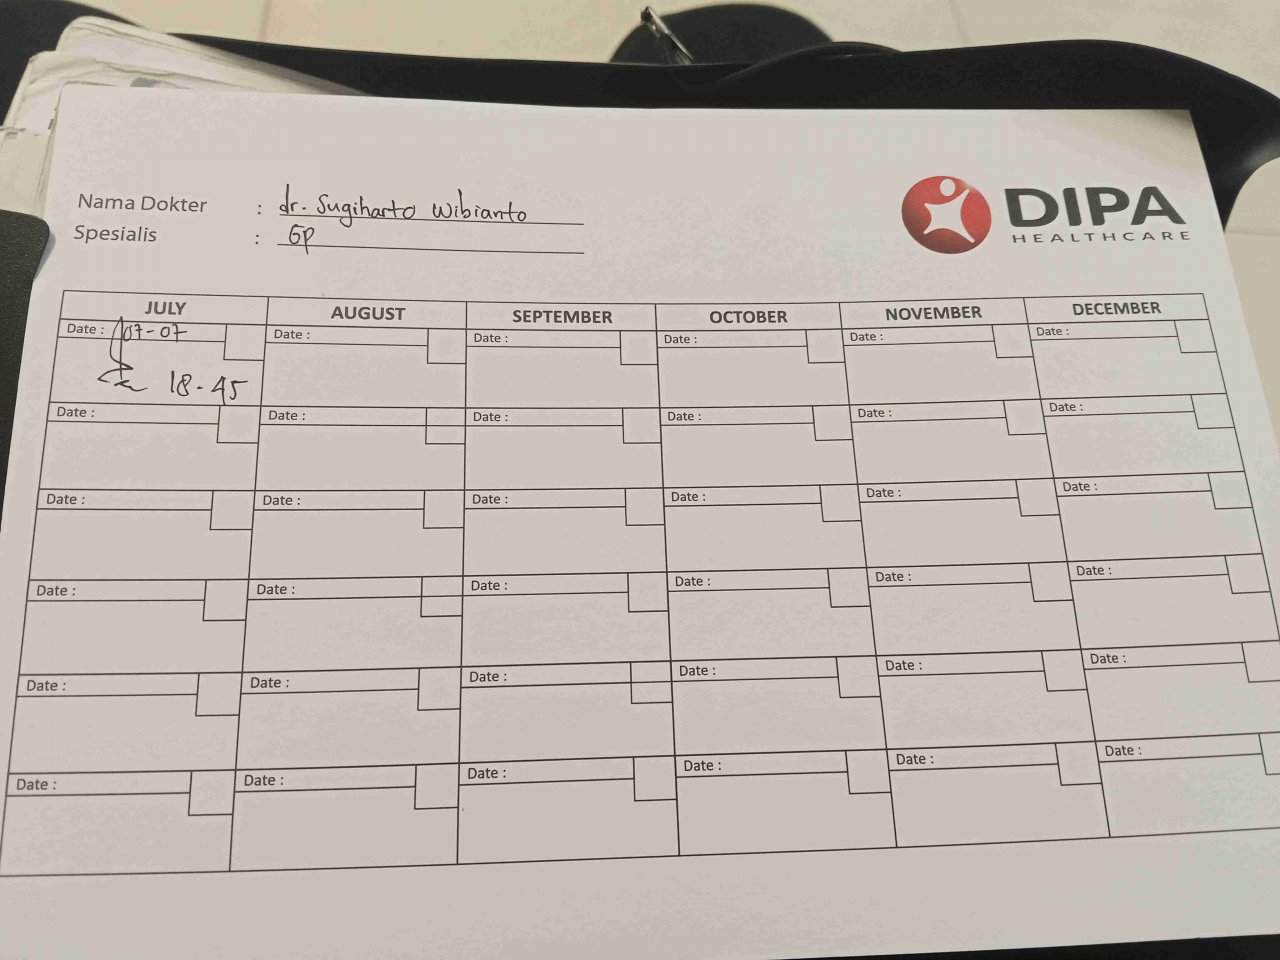 Nama Dokter : dr. Sugiharto Wibianto
Spesialis : GP
DIPA
HEALTHCARE
JULY AUGUST SEPTEMBER OCTOBER NOVEMBER DECEMBER
Date : 07-07 Date : Date : Date : Date : Date :
18-45
Date : Date : Date : Date : Date : Date :
Date : Date : Date : Date : Date : Date :
Date : Date : Date : Date : Date : Date :
Date : Date : Date : Date : Date : Date :
Date : Date : Date : Date : Date : Date :